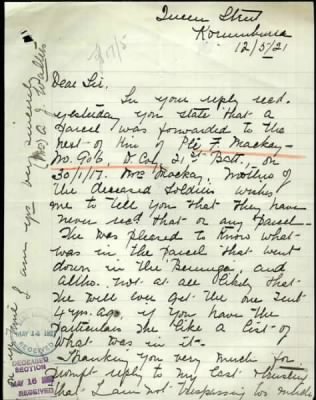 Queen Street
Korumburra
12/5/21
Dear Sir.
In your reply recd.
yesterday you state that a
parcel was forwarded to the
next of Kin of Pte F. Mackay
No. 906, D Coy, 21st Batt., on
30/1/17. Mrs Mackay, Mother of
the deceased Soldier wishes
me to tell you that they have
never recd that or any Parcel
She was pleased to know what
was in the parcel that went
down in the Barunga, and
altho. not at all likely that
she will ever get the one sent
4 yrs. ago, if you have the
Particulars she like a list of
what was in it-
Thanking you very much for
prompt reply to my last & trusting
that I am not trespassing too much
on your time I am yrs very sincerely
(Mrs) A. J.
RECEIVED
DECEASED
SECTION
MAY 16